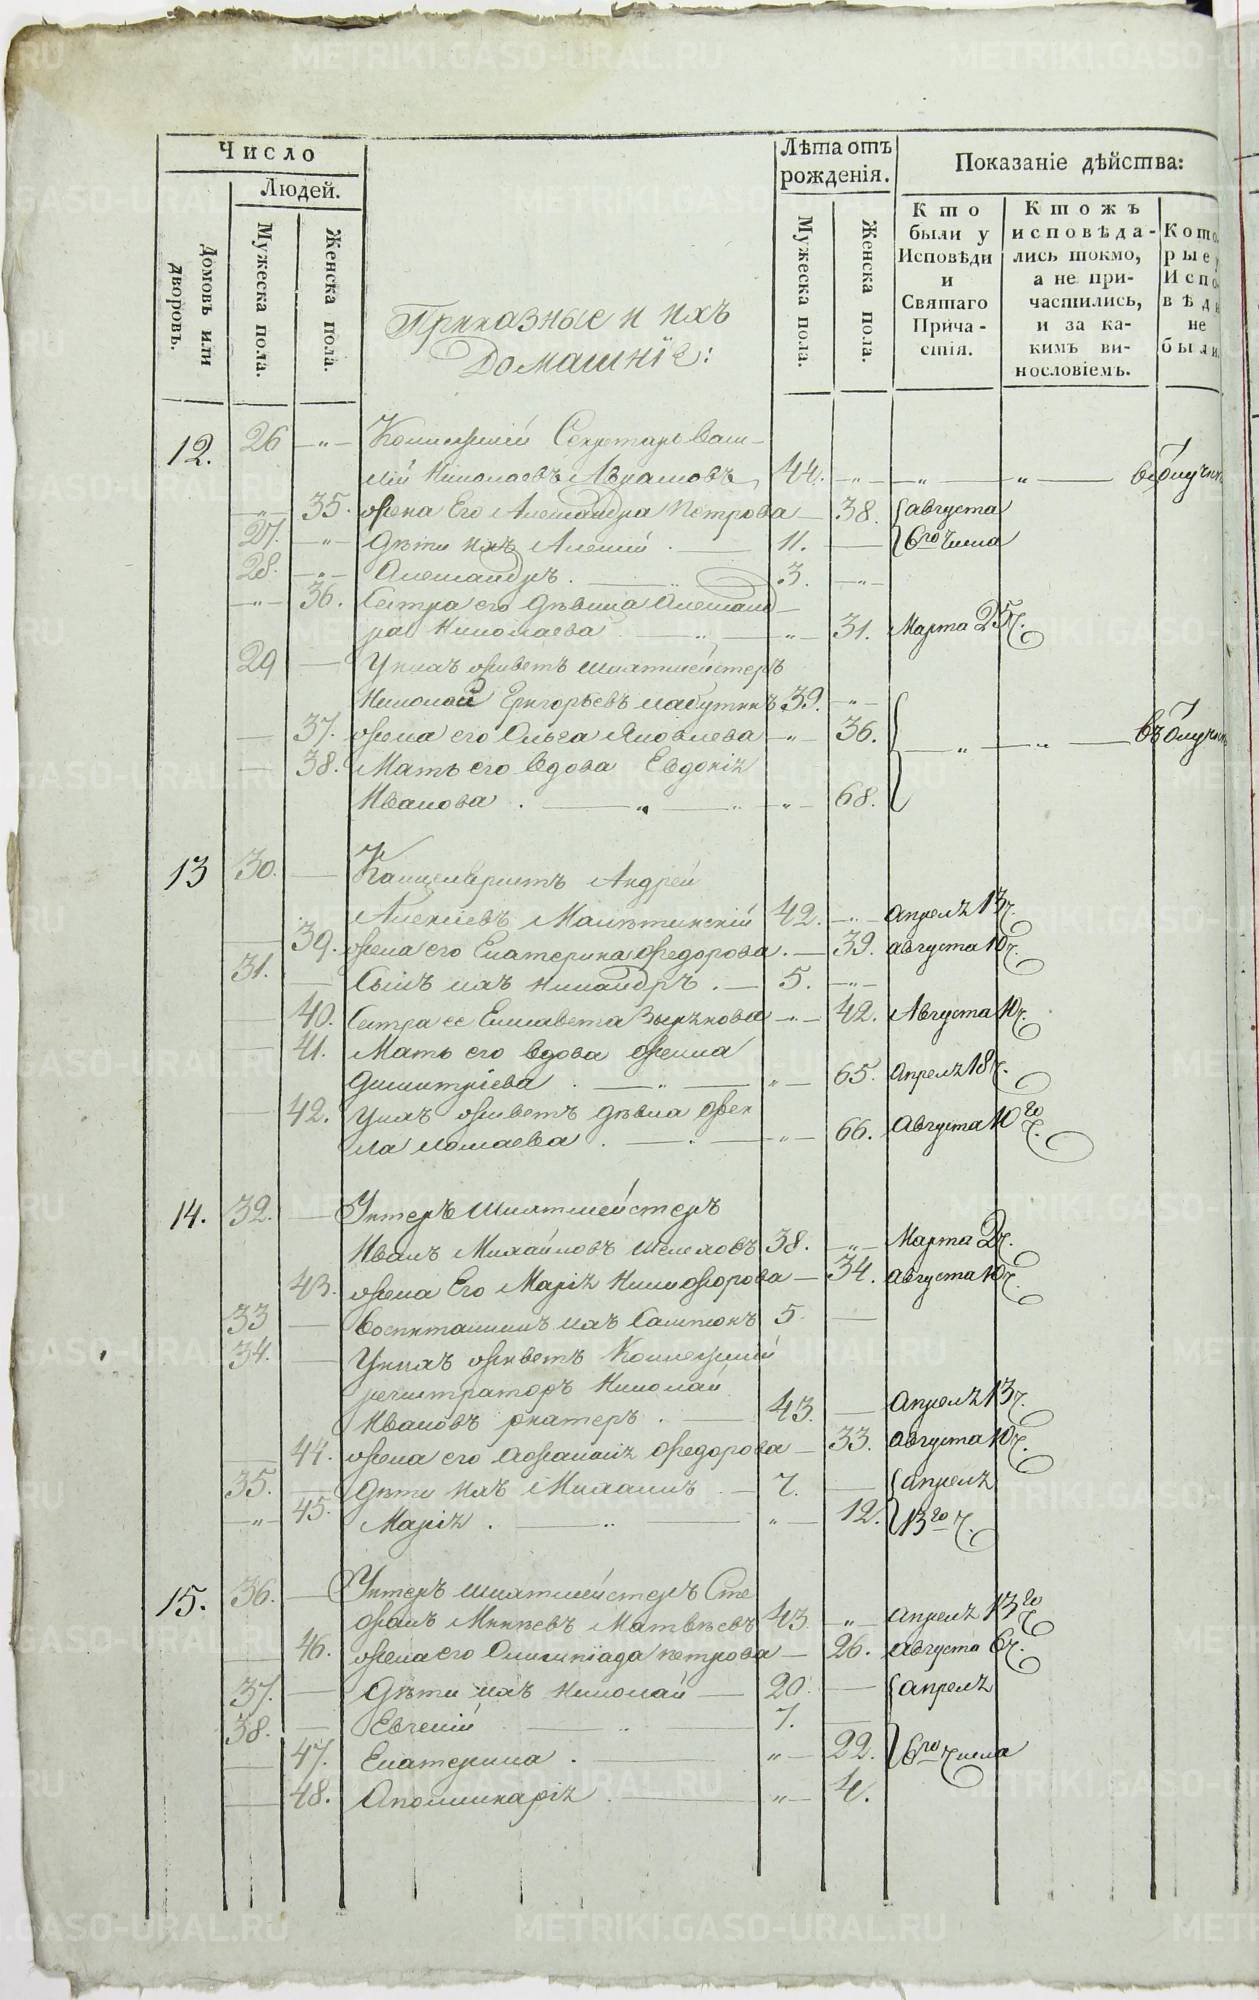 Число
Людей.
Домовъ или дворовъ.
Мужеска пола.
Женска пола.
Приказные и ихъ
Домашніе:
Лѣта отъ
рожденія.
Мужеска пола.
Женска пола.
Показаніе дѣйства:
Кто
были у
Исповѣди
и
Святаго
Прича-
стія.
Ктожъ
исповѣда-
лись токмо,
а не при-
частились,
и за ка-
кимъ ви-
нословіемъ.
Кото
рые
Испо
вѣд
не
были
12. 26 Коллежскій Секретарь Васи-
лій Николаевъ Авкамовъ, 44. въ Отлучк
35. жена Его Александра Петрова 38. августа
27. Дѣти ихъ Алексій 11. 6го числа
28. Александръ. 3.
36. Сестра его дѣвица Александ
ра Николаева 31. Марта 25 ч.
29 У нихъ живетъ шихтмейстеръ
Николай Григорьевъ 39.
37. жена его Ольга Яковлева 36. въ Отлучк
38. Мать его вдова Евдокія
Иванова. 68.
13 30. Канцеляристъ Андрей
Алексіевъ 42. апреля 13 ч.
39. жена его Екатерина Федорова. 39. августа 10 ч.
31. Сынъ ихъ Никандръ. 5.
40. Сестра ее Елисавета Зырянова 42. Августа 10 ч.
41. Мать его вдова Фекла
Димитріева. 65. апреля 18 ч.
42. У нихъ живетъ дѣвка Фек
ла 66. августа 10го ч.
14. 32. Унтеръ Шихтмейстеръ
Иванъ Михайловъ Шелеховъ 38. Марта 2 ч.
43. жена Его Марія Никифорова 34. августа 10 ч.
33 Воспитанникъ ихъ 5.
34. У нихъ живетъ Коллежскій
регистраторъ Николай
Ивановъ 43. апреля 13 ч.
44. жена его Афанасія Федорова 33. августа 10 ч.
35. Дѣти ихъ Михаилъ. 7. апреля
45. Марія. 12. 13го ч.
15. 36. Унтеръ шихтмейстеръ Сте
фанъ Матвѣевъ 43. апреля 13го ч.
46. жена его Олимпіада петрова 26. августа 6 ч.
37. Дѣти ихъ Николай 20. апреля
38. Евгеній 7.
47. Екатерина. 22. 6го числа
48. Аполлинарія. 4.
METRIKI.GASO-URAL.RU